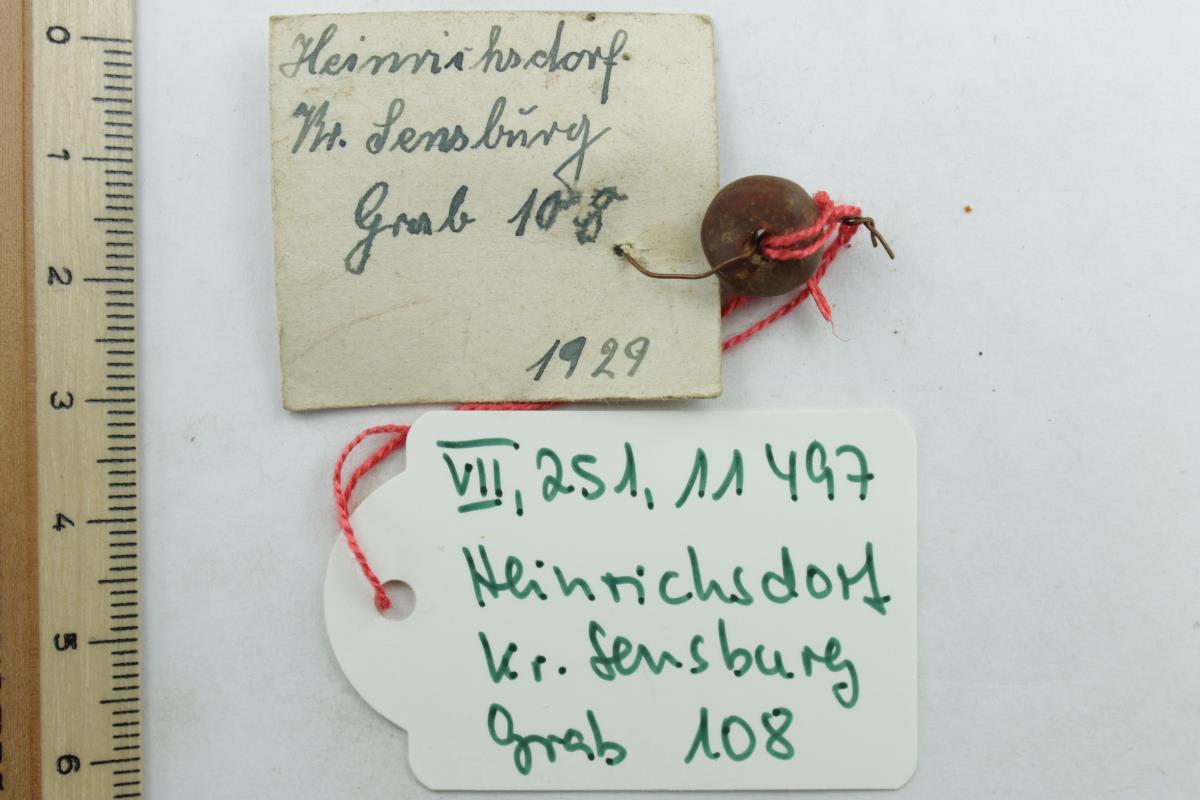 Heinrichsdorf
Kr. Sensburg
Grab 108
1929
VII, 251, 11497
Heinrichsdorf
Kr. Sensburg
Grab 108
0
1
2
3
4
5
6